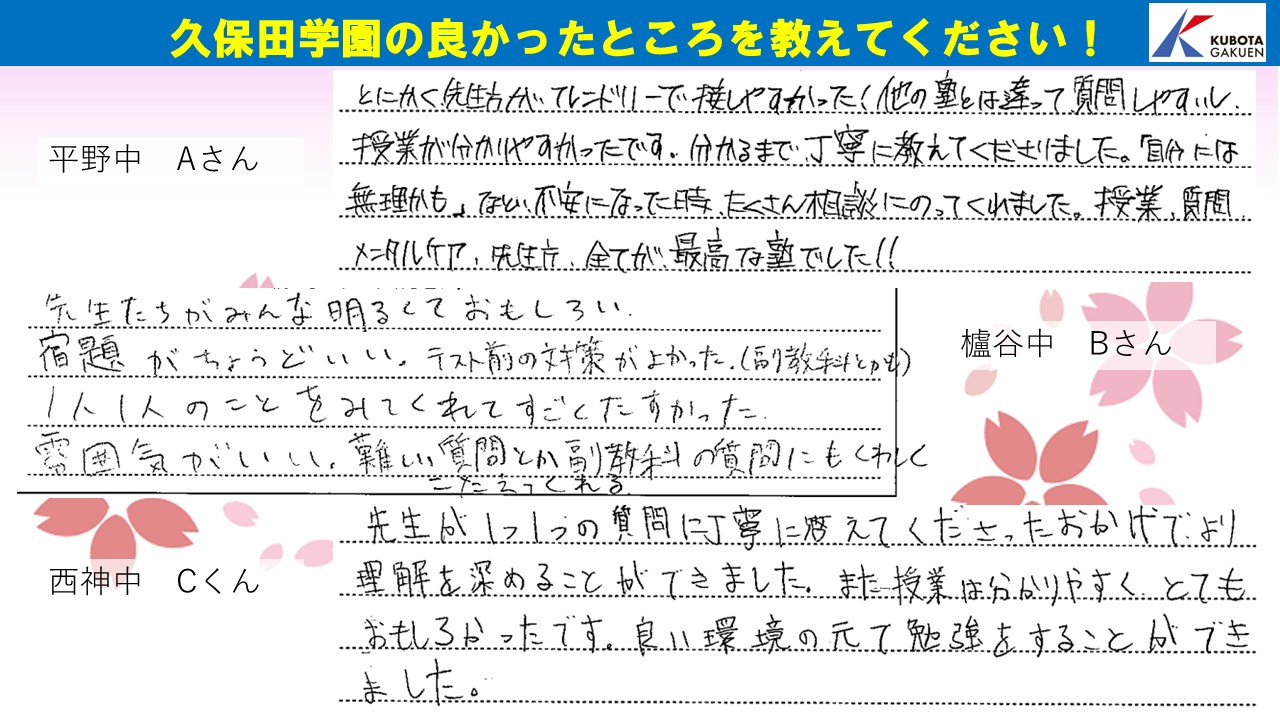 久保田学園の良かったところを教えてください！
KUBOTA
GAKUEN
平野中　Aさん
とにかく先生方がフレンドリーで接しやすかった！他の塾とは違って質問しやすいし、
授業が分かりやすかったです。分かるまで丁寧に教えてくださりました。「自分には
無理かも」などい不安になった時、たくさん相談にのってくれました。授業、質問、
メンタルケア、先生方、全てが最高な塾でした！！
櫨谷中　Bさん
先生たちがみんな明るくておもしろい。
宿題がちょうどいい。テスト前の対策がよかった。(副教科とかも)
1人1人のことをみてくれてすごくたすかった。
雰囲気がいい。難しい質問とか副教科の質問にもくわしく
こたえてくれる
西神中　Cくん
先生が1つ1つの質問に丁寧に答えてくださったおかげで、より
理解を深めることができました。また授業は分かりやすく、とても
おもしろかったです。良い環境の元で勉強をすることができ
ました。